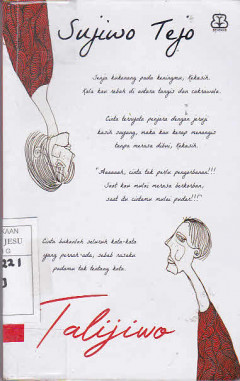 Sujiwo Tejo
BENTANG
Senja kukenang pada keningmu, Kekasih.
Kala kau rebah di antara tangis dan cakrawala.
Cinta ternyata penjara dengan jeruji
kasih sayang, maka kau kerap menangis
tanpa merasa dibui, Kekasih.
"Aaaaaah, cinta tak perlu pengorbanan!!!
Saat kau mulai merasa berkorban,
saat itu cintamu mulai pudar!!!"
Cinta bukanlah seluruh kata-kata
yang pernah ada, sebab rasaku
padamu tak tentang kata.
KAAN
JESU
221
Talijiwo